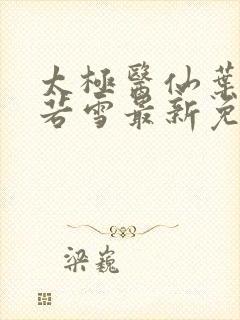 太極醫仙葉
若雪最新免
梁巍